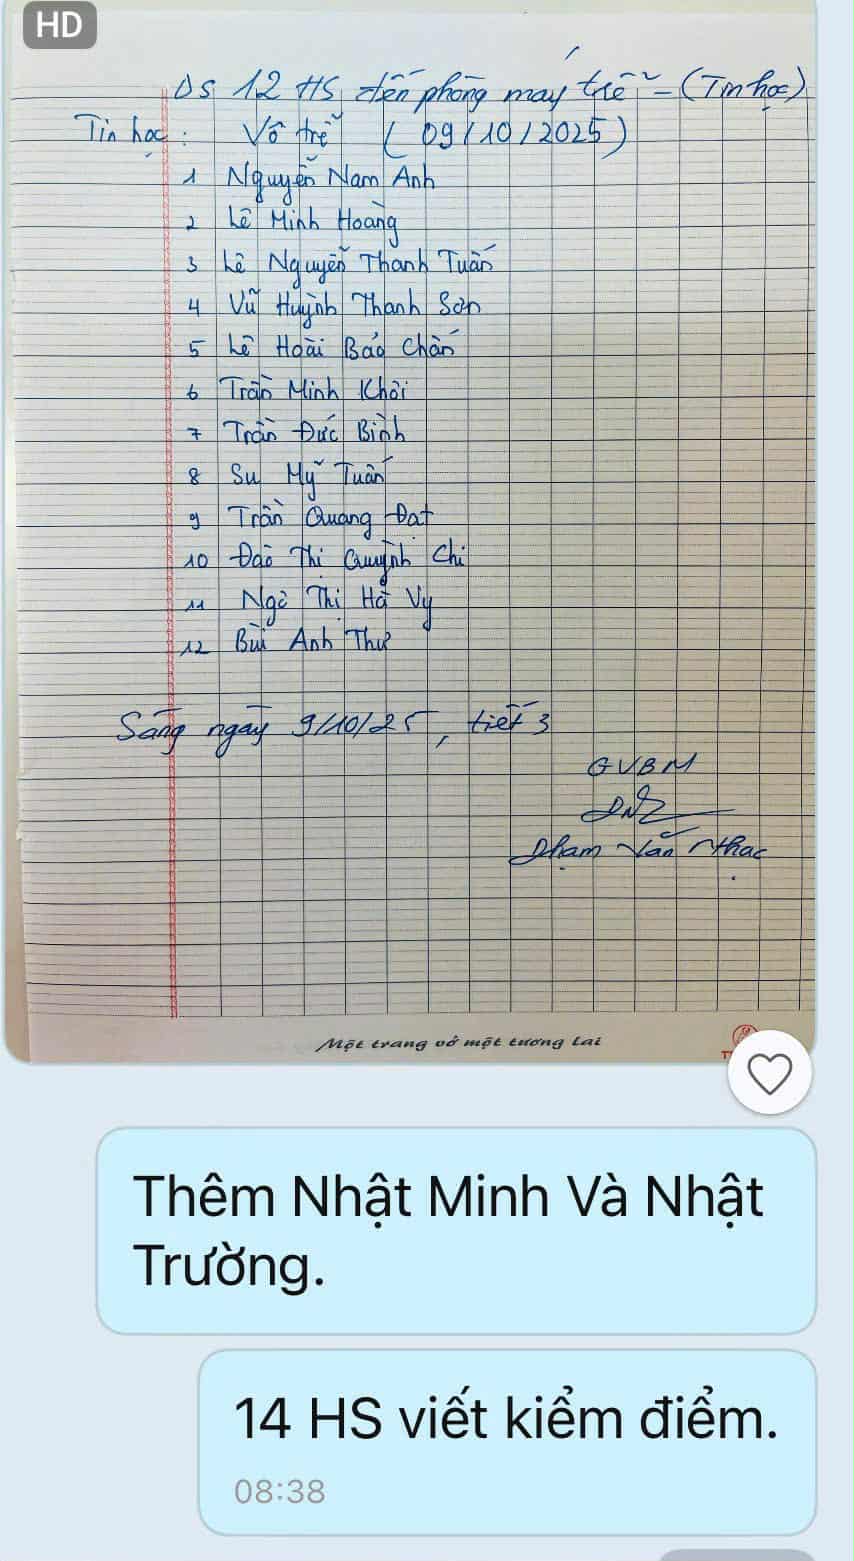 HD
DS 12 HS đến phòng máy trễ - (Tin học)
Tin học : Vô trễ (09/10/2025)
1 Nguyễn Nam Anh
2 Lê Minh Hoàng
3 Lê Nguyễn Thanh Tuấn
4 Vũ Huỳnh Thanh Sơn
5 Lê Hoài Bảo Chấn
6 Trần Minh Khôi
7 Trần Đức Bình
8 Su Mỹ Tuấn
9 Trần Quang Đạt
10 Đào Thị Quỳnh Chi
11 Ngô Thị Hà Vy
12 Bùi Anh Thư
Sáng ngày 9/10/25, tiết 3
GVBM
Phạm Văn Nhạc
Một trang vở một tương lai
Thêm Nhật Minh Và Nhật
Trường.
14 HS viết kiểm điểm.
08:38